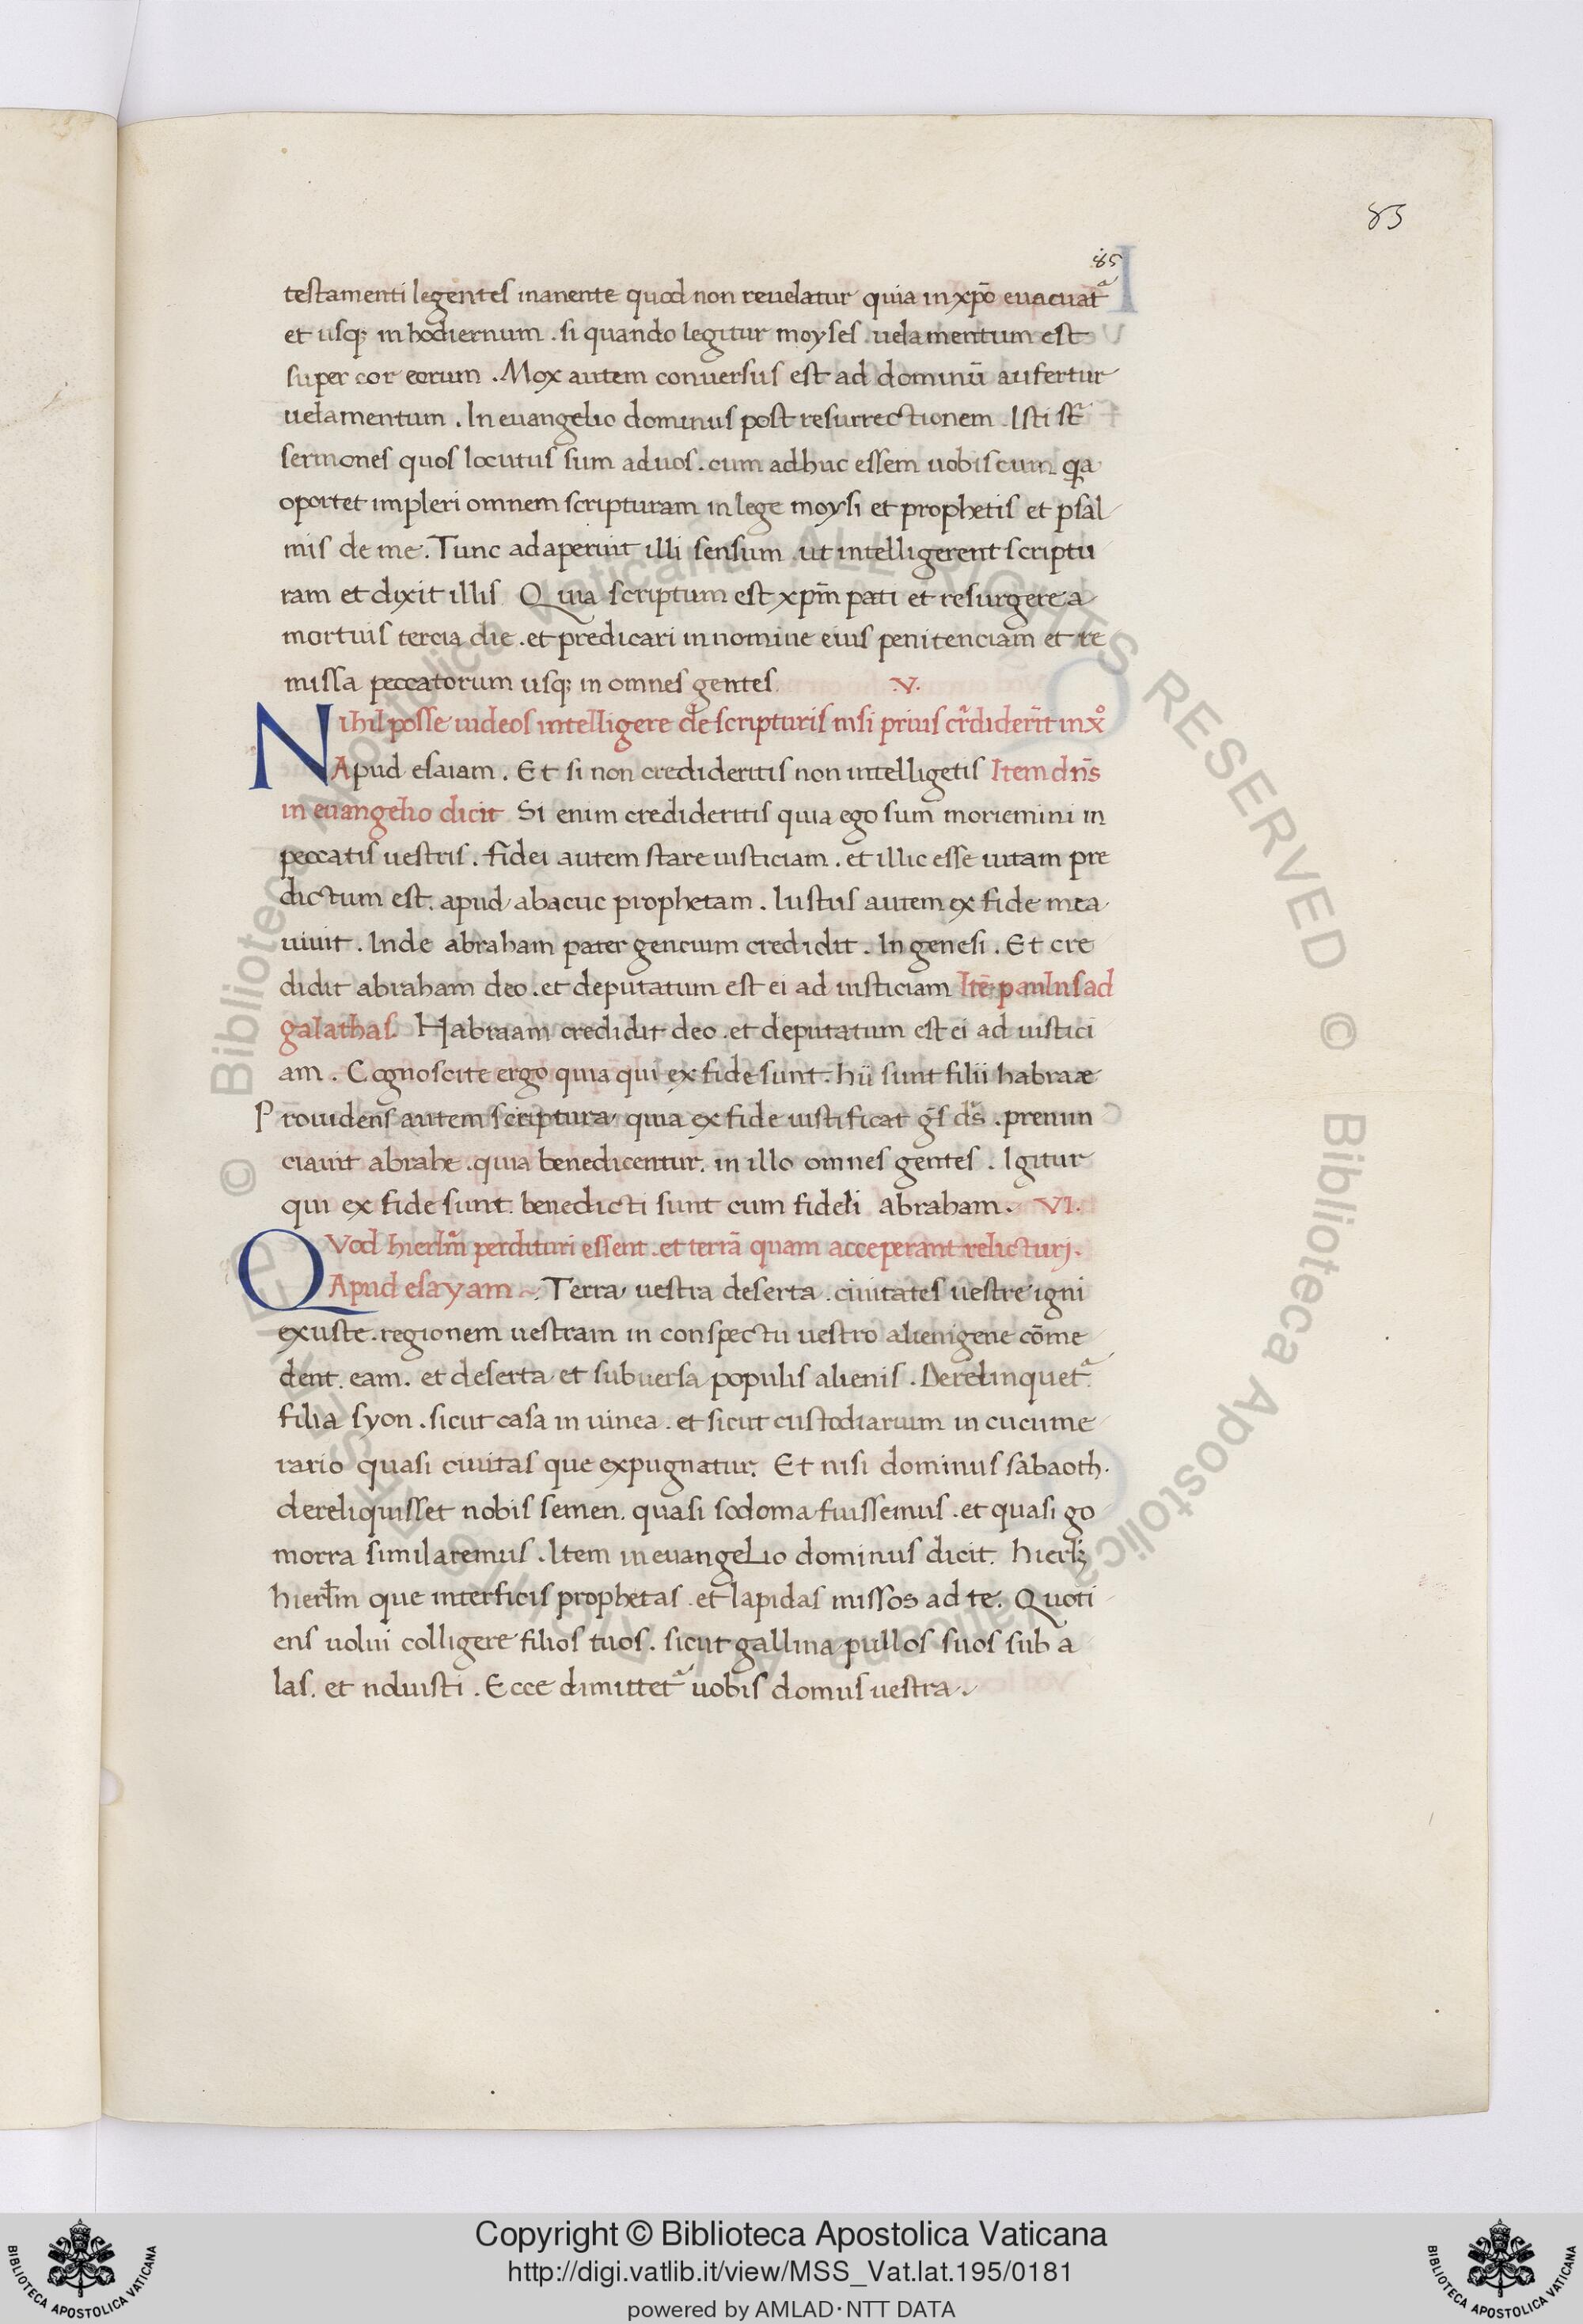 85
85
testamenti legentes manente quod non reuelatur quia in xp̄o euacuat᷒
et usq; in hodiernum . si quando legitur moyses . uelamentum est
super cor eorum . Mox autem conuersus est ad dominū aufertur
uelamentum . In euangelio dominus post resurrectionem . Isti st̄
sermones quos locutus sum ad uos . cum adhuc essem uobiscum qa
oportet impleri omnem scripturam in lege moysi et prophetis et psal
mis de me . Tunc adaperuit illi sensum . ut intelligerent scriptu
ram et dixit illis Quia scriptum est xp̄m pati et resurgere a
mortuis tercia die . et predicari in nomine eius penitenciam et re
missa peccatorum usq; in omnes gentes . V .
Nihil posse iudeos intelligere de scripturis nisi prius cr̄diderīt in xo̊
Apud esaiam . Et si non credideritis non intelligetis Item dn̄s
in euangelio dicit Si enim credideritis quia ego sum moriemini in
peccatis uestris . fidei autem stare iusticiam . et illic esse uitam pre
dictum est . apud abacuc prophetam . Iustus autem ex fide mea
uiuit . Inde abraham pater gencium credidit . In genesi . Et cre
didit abraham deo . et deputatum est ei ad iusticiam Itē paulus ad
galathas . Habraam credidit deo . et deputatum est ei ad iustici
am . Cognoscite ergo quia qui ex fide sunt . hii sunt filii habraæ
Prouidens autem scriptura quia ex fide iustificat gs̄ ds̄ . prenun
ciauit abrahe . quia benedicentur . in illo omnes gentes . Igitur
qui ex fide sunt . benedicti sunt cum fideli abraham . VI .
QVod hierlm̄ perdituri essent . et terrā quam acceperant relicturj .
Apud esayam . Terra uestra deserta . ciuitates uestre igni
exuste . regionem uestram in conspectu uestro alienigene cōme
dent . eam . et deserta et subuersa populis alienis . Derelinquet᷒
filia syon . sicut casa in uinea . et sicut custodiarium in cucume
rario quasi ciuitas que expugnatur . Et nisi dominus sabaoth .
dereliquisset nobis semen . quasi sodoma fuissemus . et quasi go
morra similaremus . Item in euangelio dominus dicit . hierl;
hierl̄m que interficis prophetas . et lapidas missos ad te . Quoti
ens uolui colligere filios tuos . sicut gallina pullos suos sub a
las . et noluisti . Ecce dimittet᷒ uobis domus uestra .
© Biblioteca Apostolica Vaticana ALL RIGHTS RESERVED © Biblioteca Apostolica Vaticana ALL RIGHTS RESERVED
Copyright © Biblioteca Apostolica Vaticana
http://digi.vatlib.it/view/MSS_Vat.lat.195/0181
powered by AMLAD·NTT DATA
BIBLIOTECA APOSTOLICA VATICANA
BIBLIOTECA APOSTOLICA VATICANA